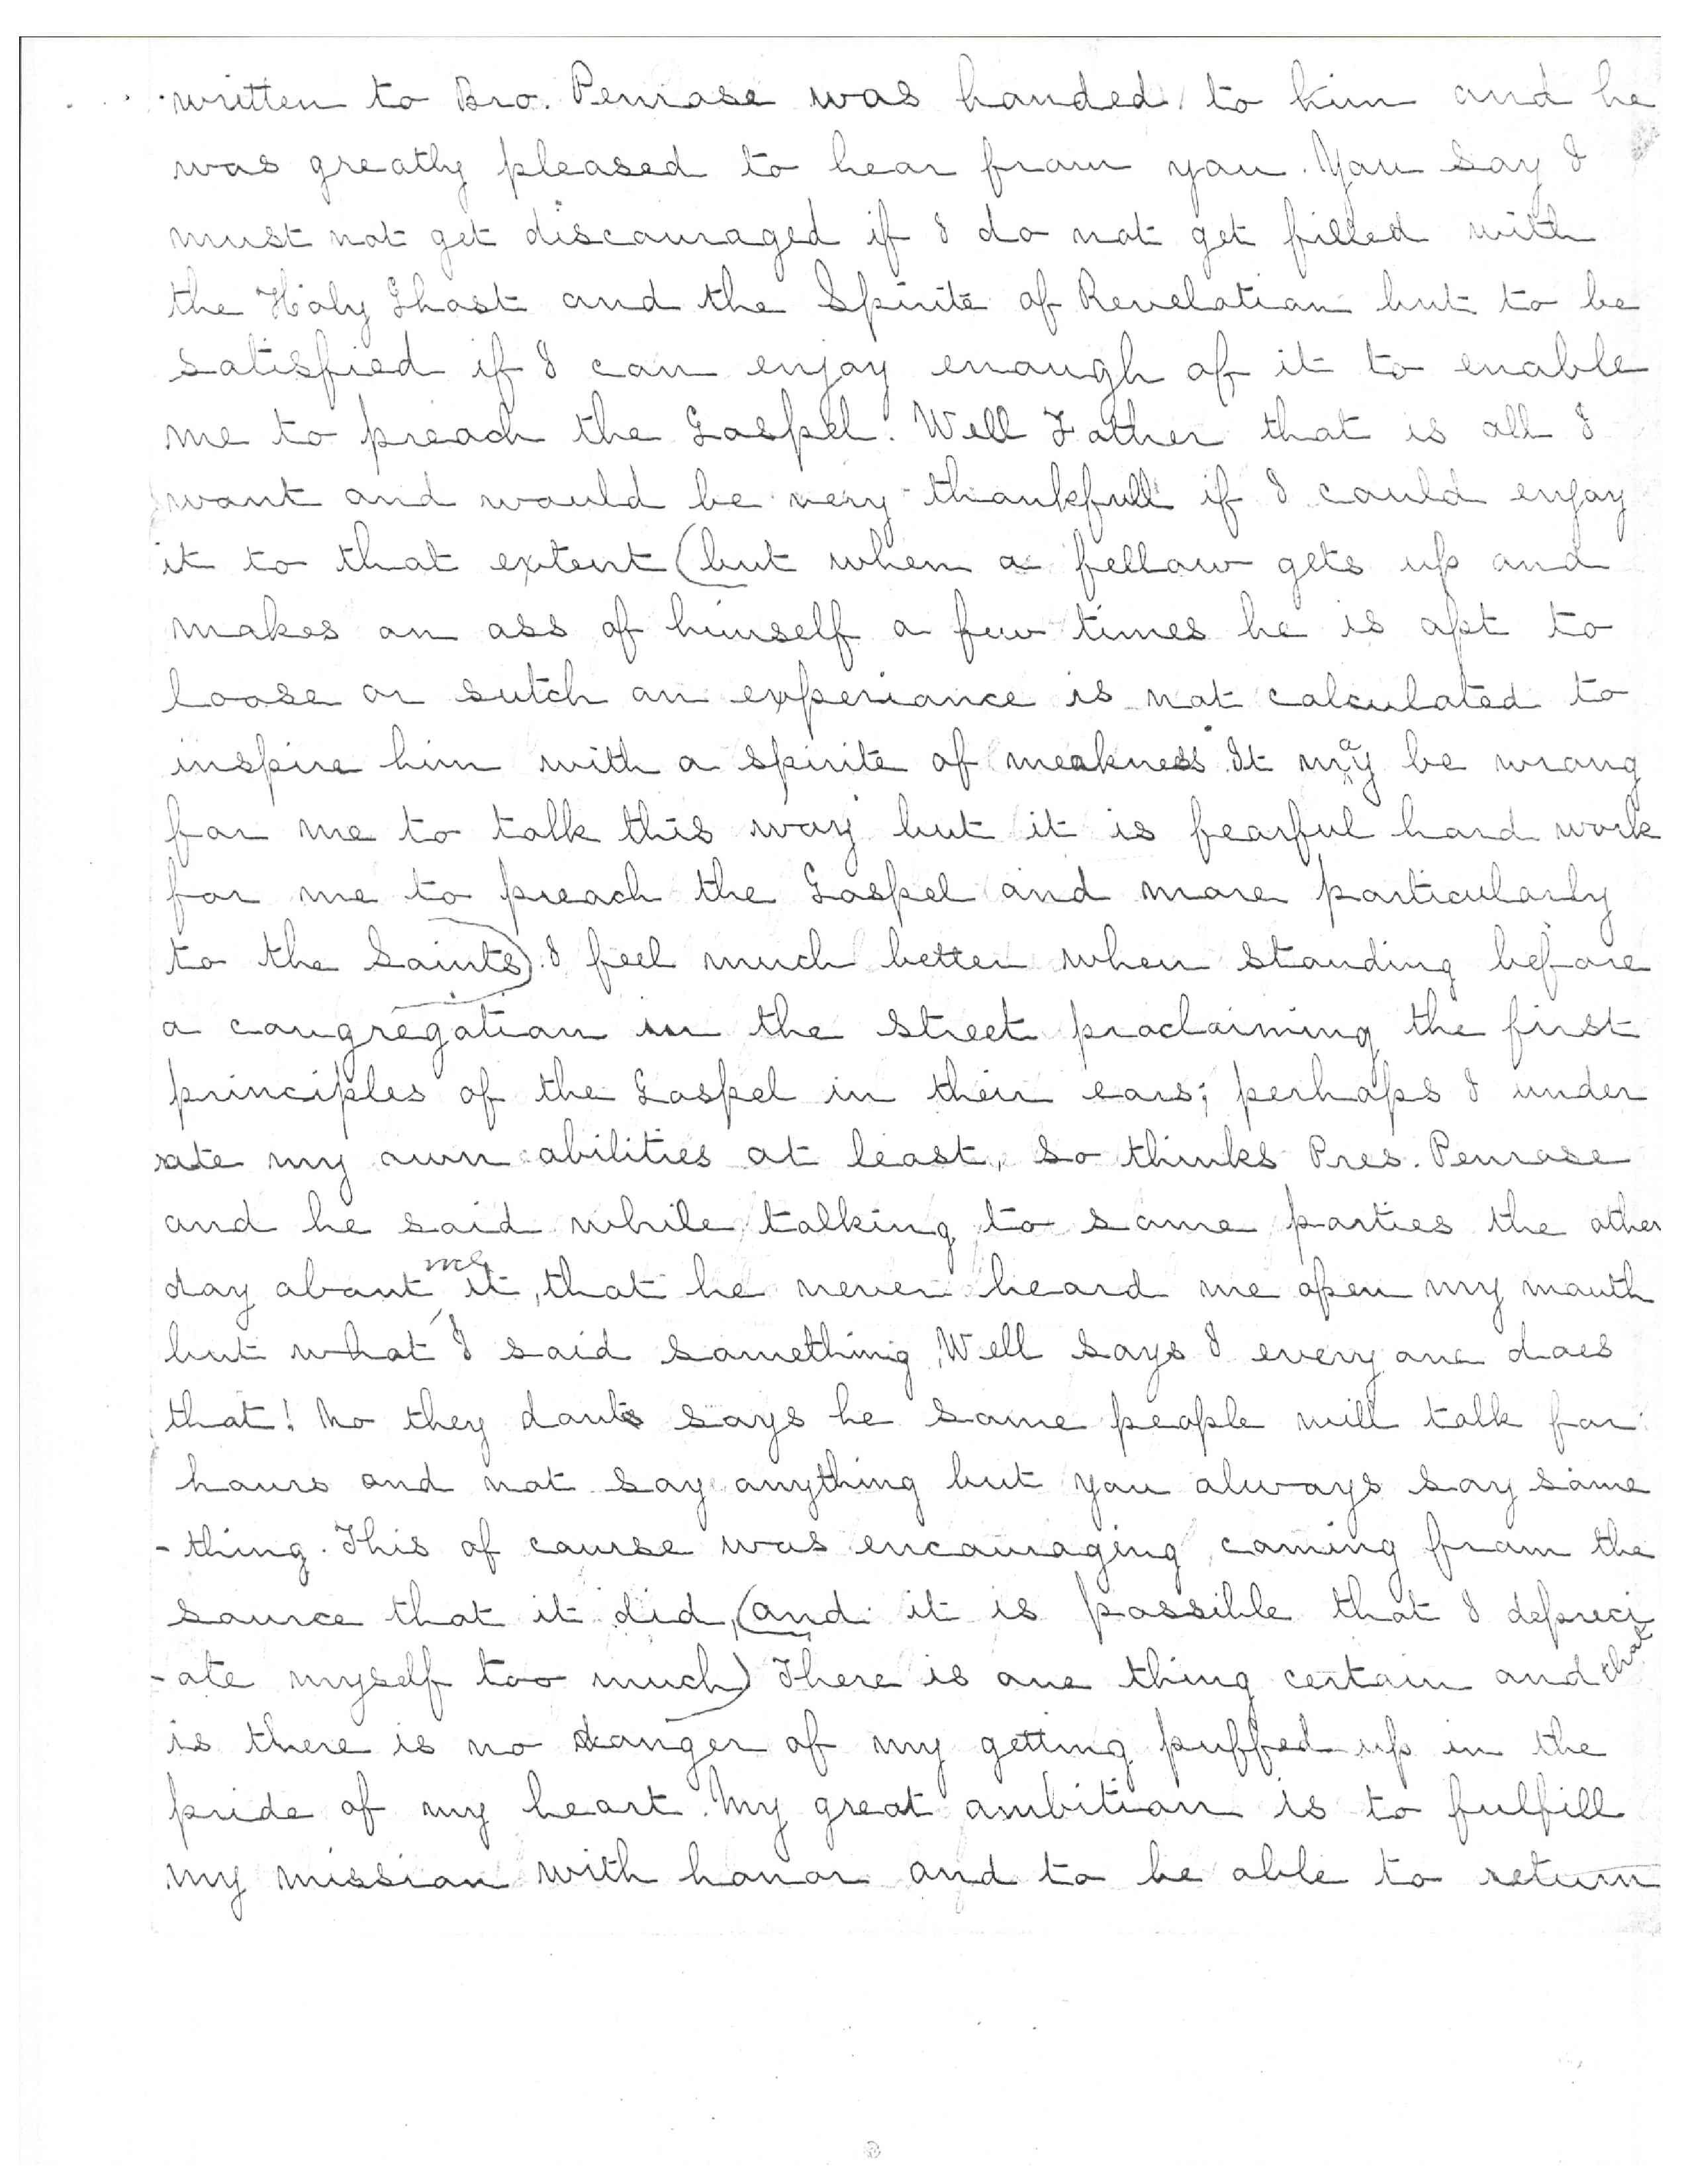 written to Bro. Penrose was handed to him and he
was greatly pleased to hear from you. You say I
must not get discouraged if I do not get filled with
the Holy Ghost and the Spirite of Revelation but to be
satisfied if I can enjoy enough of it to enable
me to preach the Gospel. Well Father that is all I
want and would be very thankfull if I could enjoy
it to that extent (but when a fellow gets up and
makes an ass of himself a few times he is apt to
loose or sutch an experiance is not calculated to
inspire him with a spirite of meekness. It may be wrong
for me to talk this way but it is fearful hard work
for me to preach the Gospel and more particularly
to the Saints). I feel much better when standing before
a congregation in the street proclaiming the first
principles of the Gospel in their ears; perhaps I under
rate my own abilities at least, so thinks Pres. Penrose
and he said while talking to some parties the other
day about me it, that he never heard me open my mouth
but what I said something. Well says I every one does
that! No they dont says he some people will talk for
hours and not say anything but you always say some
-thing. This of course was encouraging coming from the
source that it did, (and it is possible that I depreci
-ate myself too much) There is one thing certain and that
is there is no danger of my getting puffed up in the
pride of my heart. My great ambition is to fulfill
my mission with honor and to be able to return